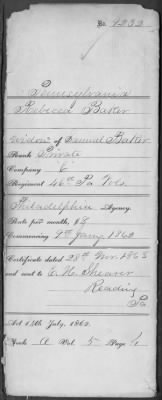 No. 9232
Pennsylvania
Rebecca Baker
Widow of Samuel Baker
Rank Private
Company "E"
Regiment 46th Pa Vols.
Philadelphia Agency.
Rate per month, $8
Commencing 9th Jany 1862
Certificate dated 28th Nov. 1863
and sent to E. H. Shearer
Reading
Pa
Act 14th July, 1862.
Book A Vol. 5 Page